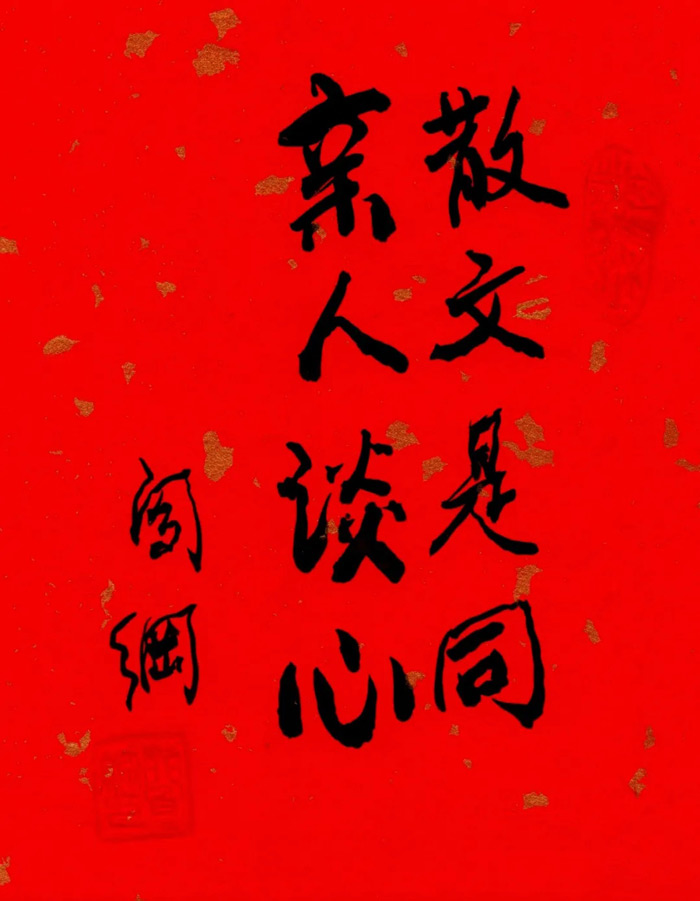 散文是同
亲人谈心
阎綱